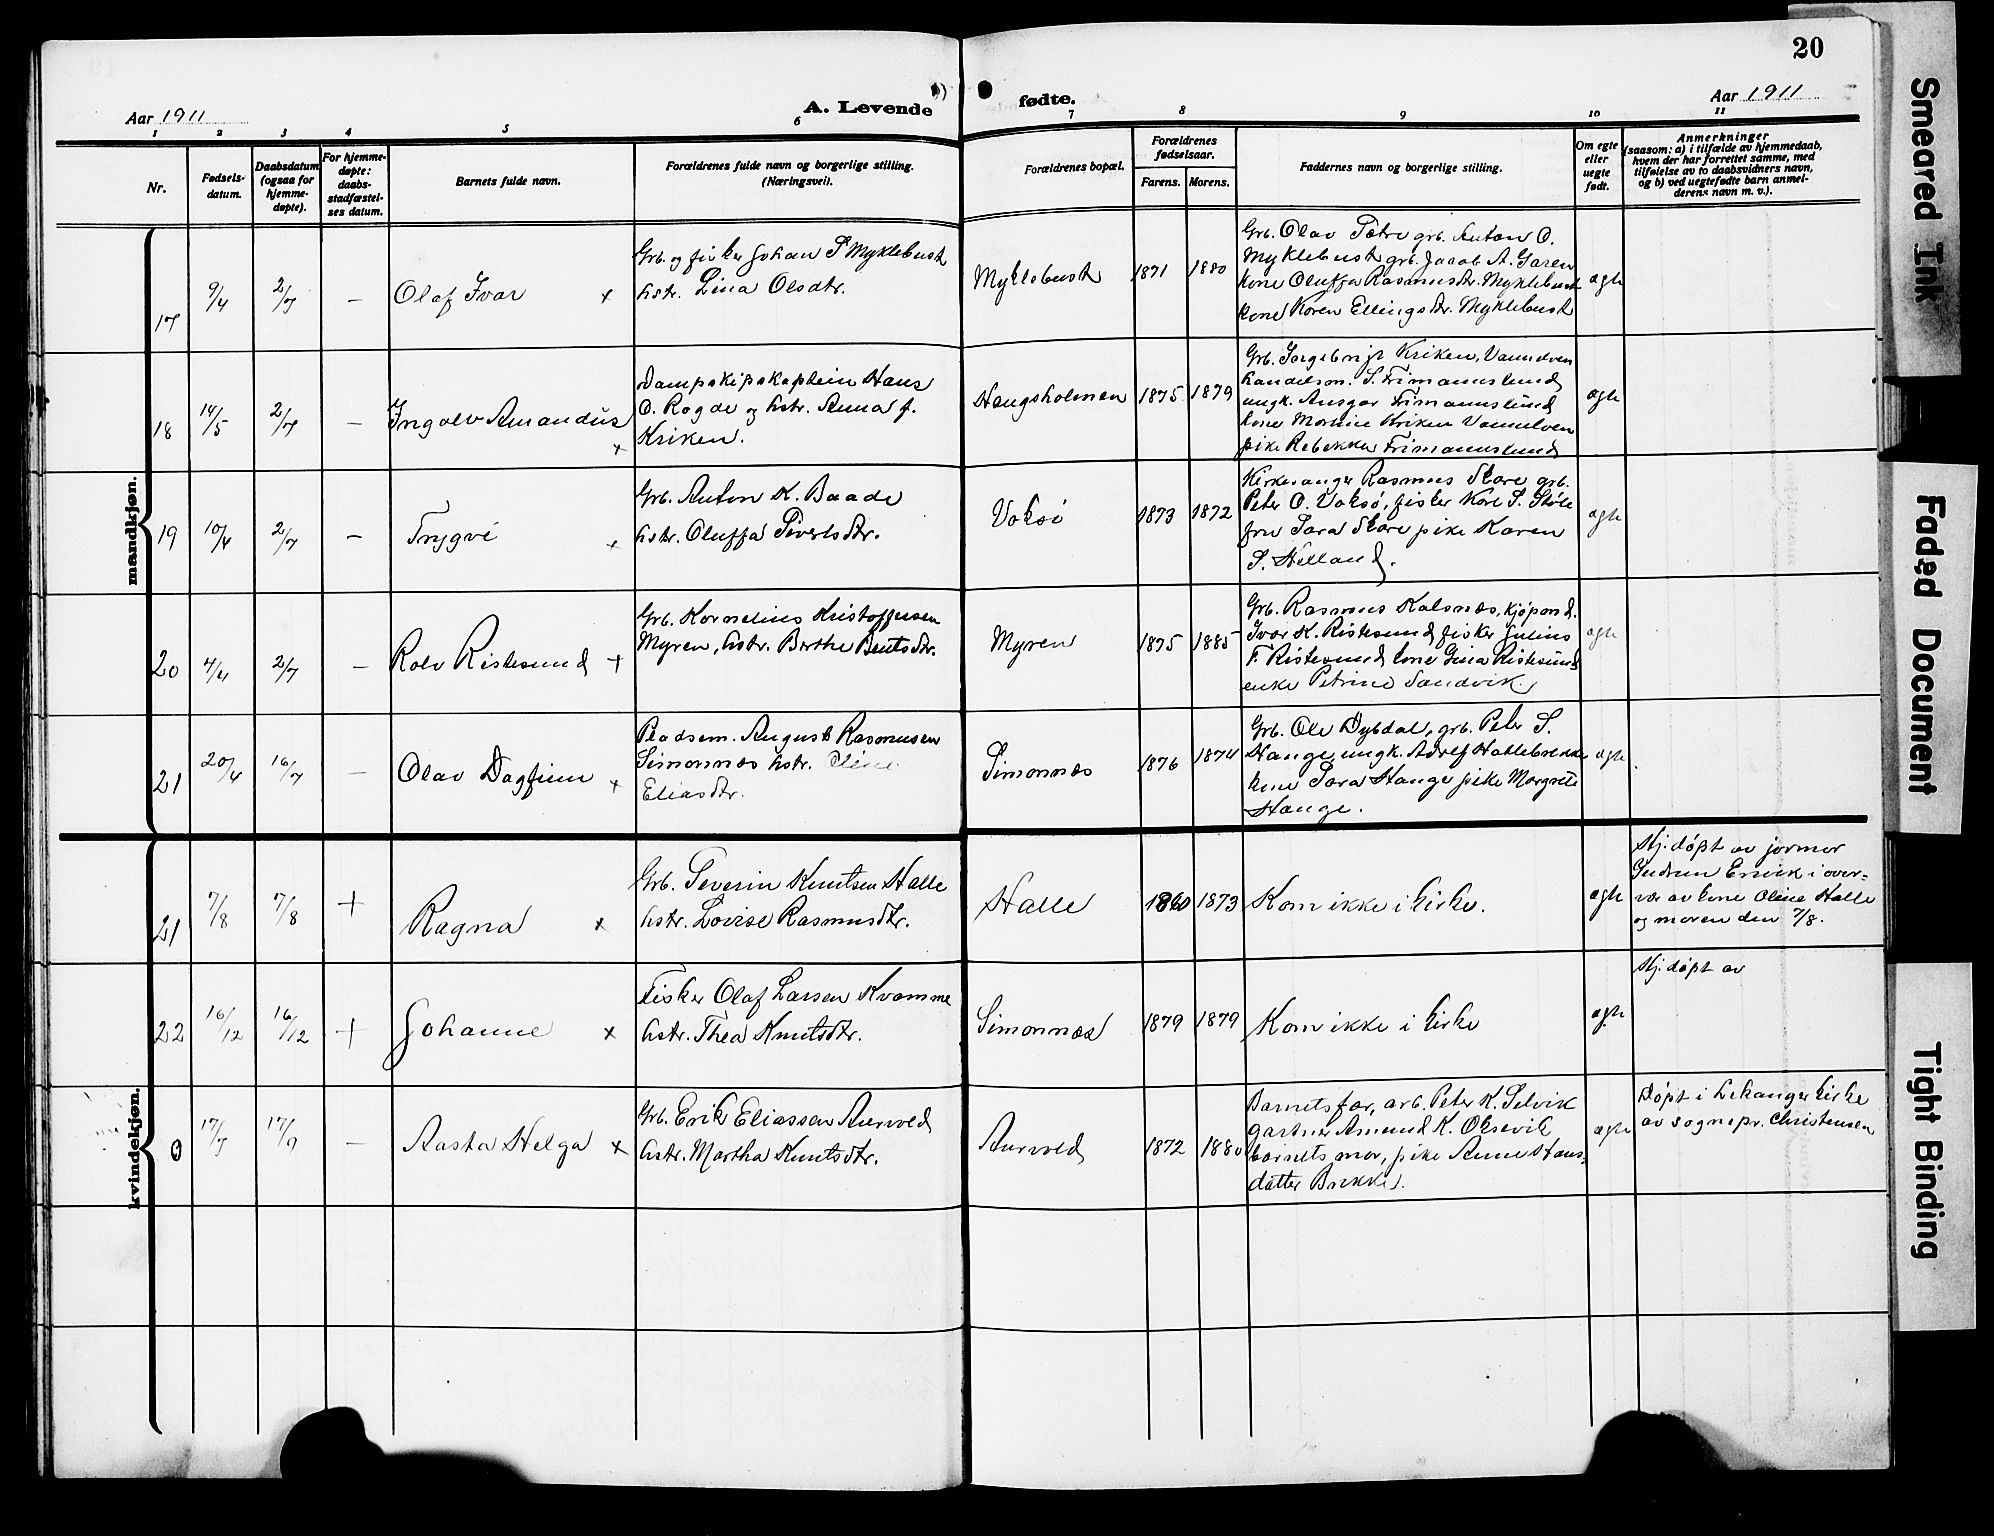 20
Aar 1911
A. Levende
fødte.
Aar 1911
1 2 3 4 5 6 7 8 9 10 11
Nr.
Fødsels-
datum.
Daabsdatum
(ogsaa for
hjemme-
døpte).
For hjemme-
døpte:
daabs-
stadfæstel-
ses datum.
Barnets fulde navn.
Forældrenes fulde navn og borgerlige stilling.
(Næringsvei).
Forældrenes bopæl.
Forældrenes
fødselsaar.
Farens. Morens.
Faddernes navn og borgerlige stilling.
Om egte
eller
uegte
født.
Anmerkninger
(saasom: a) i tilfælde av hjemmedaab,
hvem der har forrettet samme, med
tilføielse av to daabsvidners navn,
og b) ved uegtefødte barn anmel-
derens navn m. v.).
mandkjøn.
17 9/4 2/7 – Olaf Ivar x
Grb. og fisker Johan S Myklebust
hstr. Lina Olsdtr.
Myklebust 1871 1880
Grb. Olav Sætre grb. Anton O.
Myklebust grb. Jacob A.
kone Oluffa Rasmusdtr. Myklebust
kone Karen Ellingsdtr. Myklebust
ægte
18 14/5 2/7 – Ingolv Amandus x
Dampskipskaptein Hans
O. Rogde og hstr. Anna f.
Kriken.
Haugsholmen 1875 1879
Grb. Ingebrigt Kriken, Vannelven
handelsm. S. Frimannslund
ungk. Ansgar Frimannslund
kone Kriken Vannelven
pike Rebekka Frimannslund
ægte
19 10/4 2/7 – Trygve x
Grb. Anton K. Baade
hstr. Oluffa Sivertsdtr.
Voksø 1873 1872
Kirkesanger Rasmus Skare grb.
Peter O. Voksø, fisker Kore S. Støle
fru Sara Skare pike Karen
S. Helland.
ægte
20 4/4 2/7 – Rolv Ristesund +
Grb. Kornelius Kristoffersen
Myren, hstr. Berthe Bentsdtr.
Myren 1875 1885
Grb. Rasmus Kalsnæs, kjøpmd.
Ivar K. Ristesund fisker Julius
F. Ristesund kone Gina Ristesund
enke Petrine Sandvik
ægte
21 20/4 16/7 – Olav Dagfinn x
Pladsem. August Rasmusen
Simonnæs hstr. Oline
Eliasdtr.
Simonnæs 1876 1874
Grb. Ole Dybdal, grb. Peter S.
Hauge, ungk. Adolf Hallebrekke
kone Sara Hauge pike Margrete
Hauge.
ægte
kvindekjøn.
21 7/8 7/8 + Ragna x
Grb. Severin Knutsen Halle
hstr. Lovise Rasmusdtr.
Halle 1860 1873
Kom ikke i kirke.
ægte
Hj. døpt av jormor
Gudrun Ervik i over-
vær av kone Oline Halle
og moren den 7/8.
22 16/12 16/12 + Johanne x
Fisker Olaf Larsen Kvamme
hstr. Thea Knutsdtr.
Simonnæs 1879 1879
Kom ikke i kirke
ægte
Hj. døpt av
0 17/7 17/9 – Aasta Helga x
Grb. Erik Eliassen Aurvold
hstr. Martha Knutsdtr.
Aurvold 1872 1880
Barnets far, arb. Peter K. Selvik
gartner Amund K. Oksevik
barnets mor, pike Anne Hans-
datter Brekke.
ægte
Døpt i Leikanger kirke
av sognepr. Christensen
Smeared Ink
Faded Document
Tight Binding